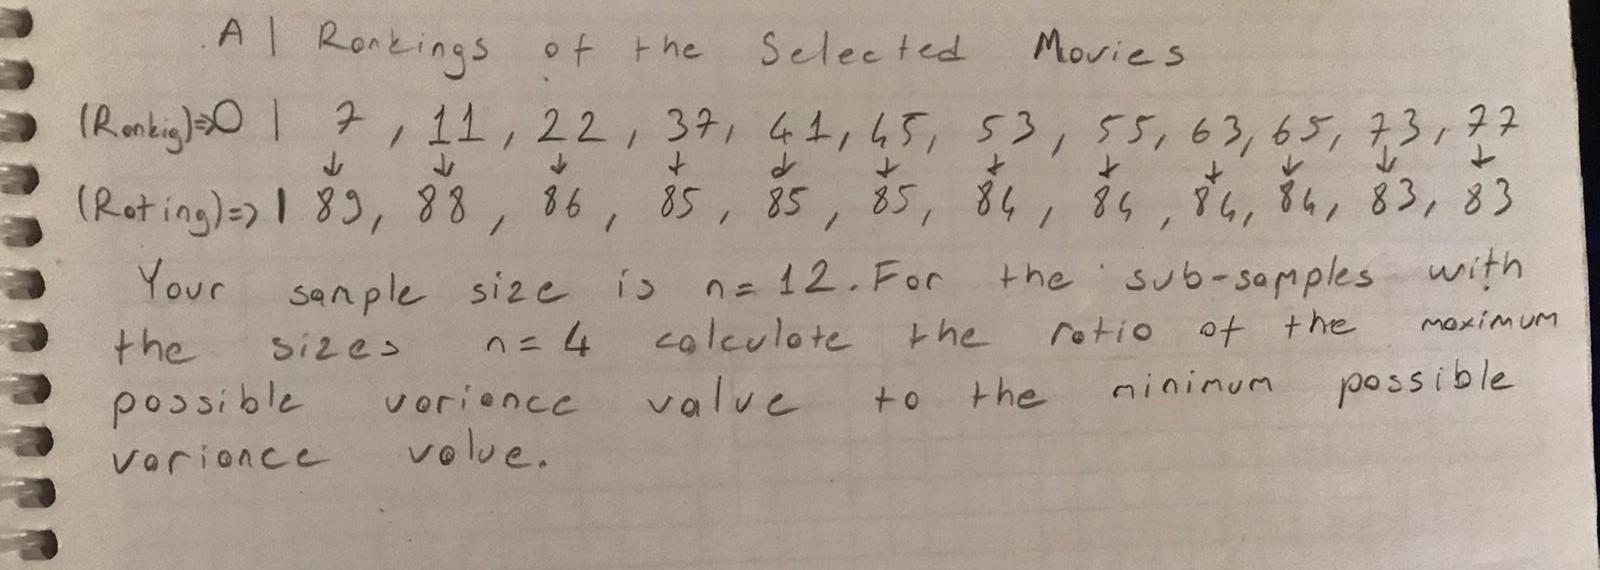 A | Rankings of the Selected Movies
(Rankig)=>0 | 7, 11, 22, 37, 41, 45, 53, 55, 63, 65, 73, 77
↓ ↓ ↓ ↓ ↓ ↓ ↓ ↓ ↓ ↓ ↓ ↓
(Rating)=> | 89, 88, 86, 85, 85, 85, 84, 84, 84, 84, 83, 83
Your sample size is n=12. For the sub-samples with
the sizes n=4 calculate the ratio of the maximum
possible variance value to the minimum possible
variance value.